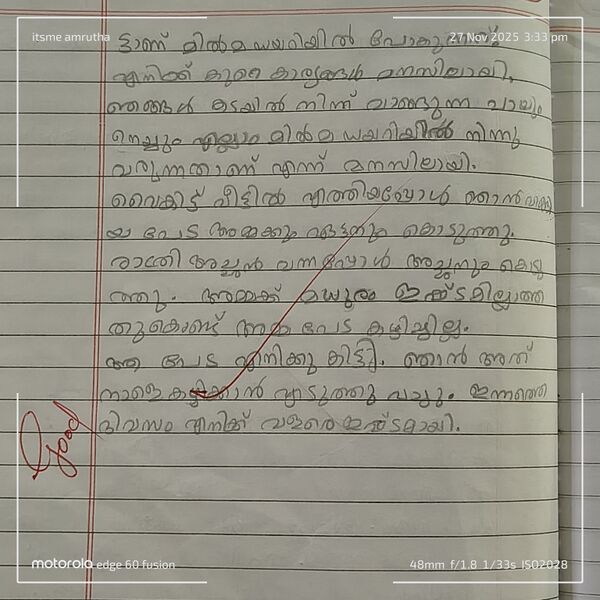 itsme amrutha
27 Nov 2025 3:33 pm
ട്ടാണ് മിൽമ ഡയറിയിൽ പോകുന്നത്
എനിക്ക് കുറെ കാര്യങ്ങൾ മനസിലായി,
ഞങ്ങൾ കടയിൽ നിന്ന് വാങ്ങുന്ന പാലും
നെയ്യും എല്ലാം മിൽമ ഡയറിയിൽ നിന്നു
വരുന്നതാണ് എന്ന് മനസിലായി.
വൈകിട്ട് വീട്ടിൽ എത്തിയപ്പോൾ ഞാൻ
യ പേട അമ്മക്കും ഏട്ടനും കൊടുത്തു.
രാത്രി അച്ഛൻ വന്നപ്പോൾ അച്ഛനും കൊടു
ത്തു. അമ്മക്ക് മധുരം ഇഷ്ടമില്ലാത്ത
തുകൊണ്ട് അമ്മ പേട കഴിച്ചില്ല.
ആ പേട എനിക്കു കിട്ടി. ഞാൻ അത്
നാളെ കഴിക്കാൻ എടുത്തു വച്ചു. ഇന്നത്തെ
ദിവസം എനിക്ക് വളരെ ഇഷ്ടമായി.
Good
motorola edge 60 fusion
48mm f/1.8 1/33s ISO2028